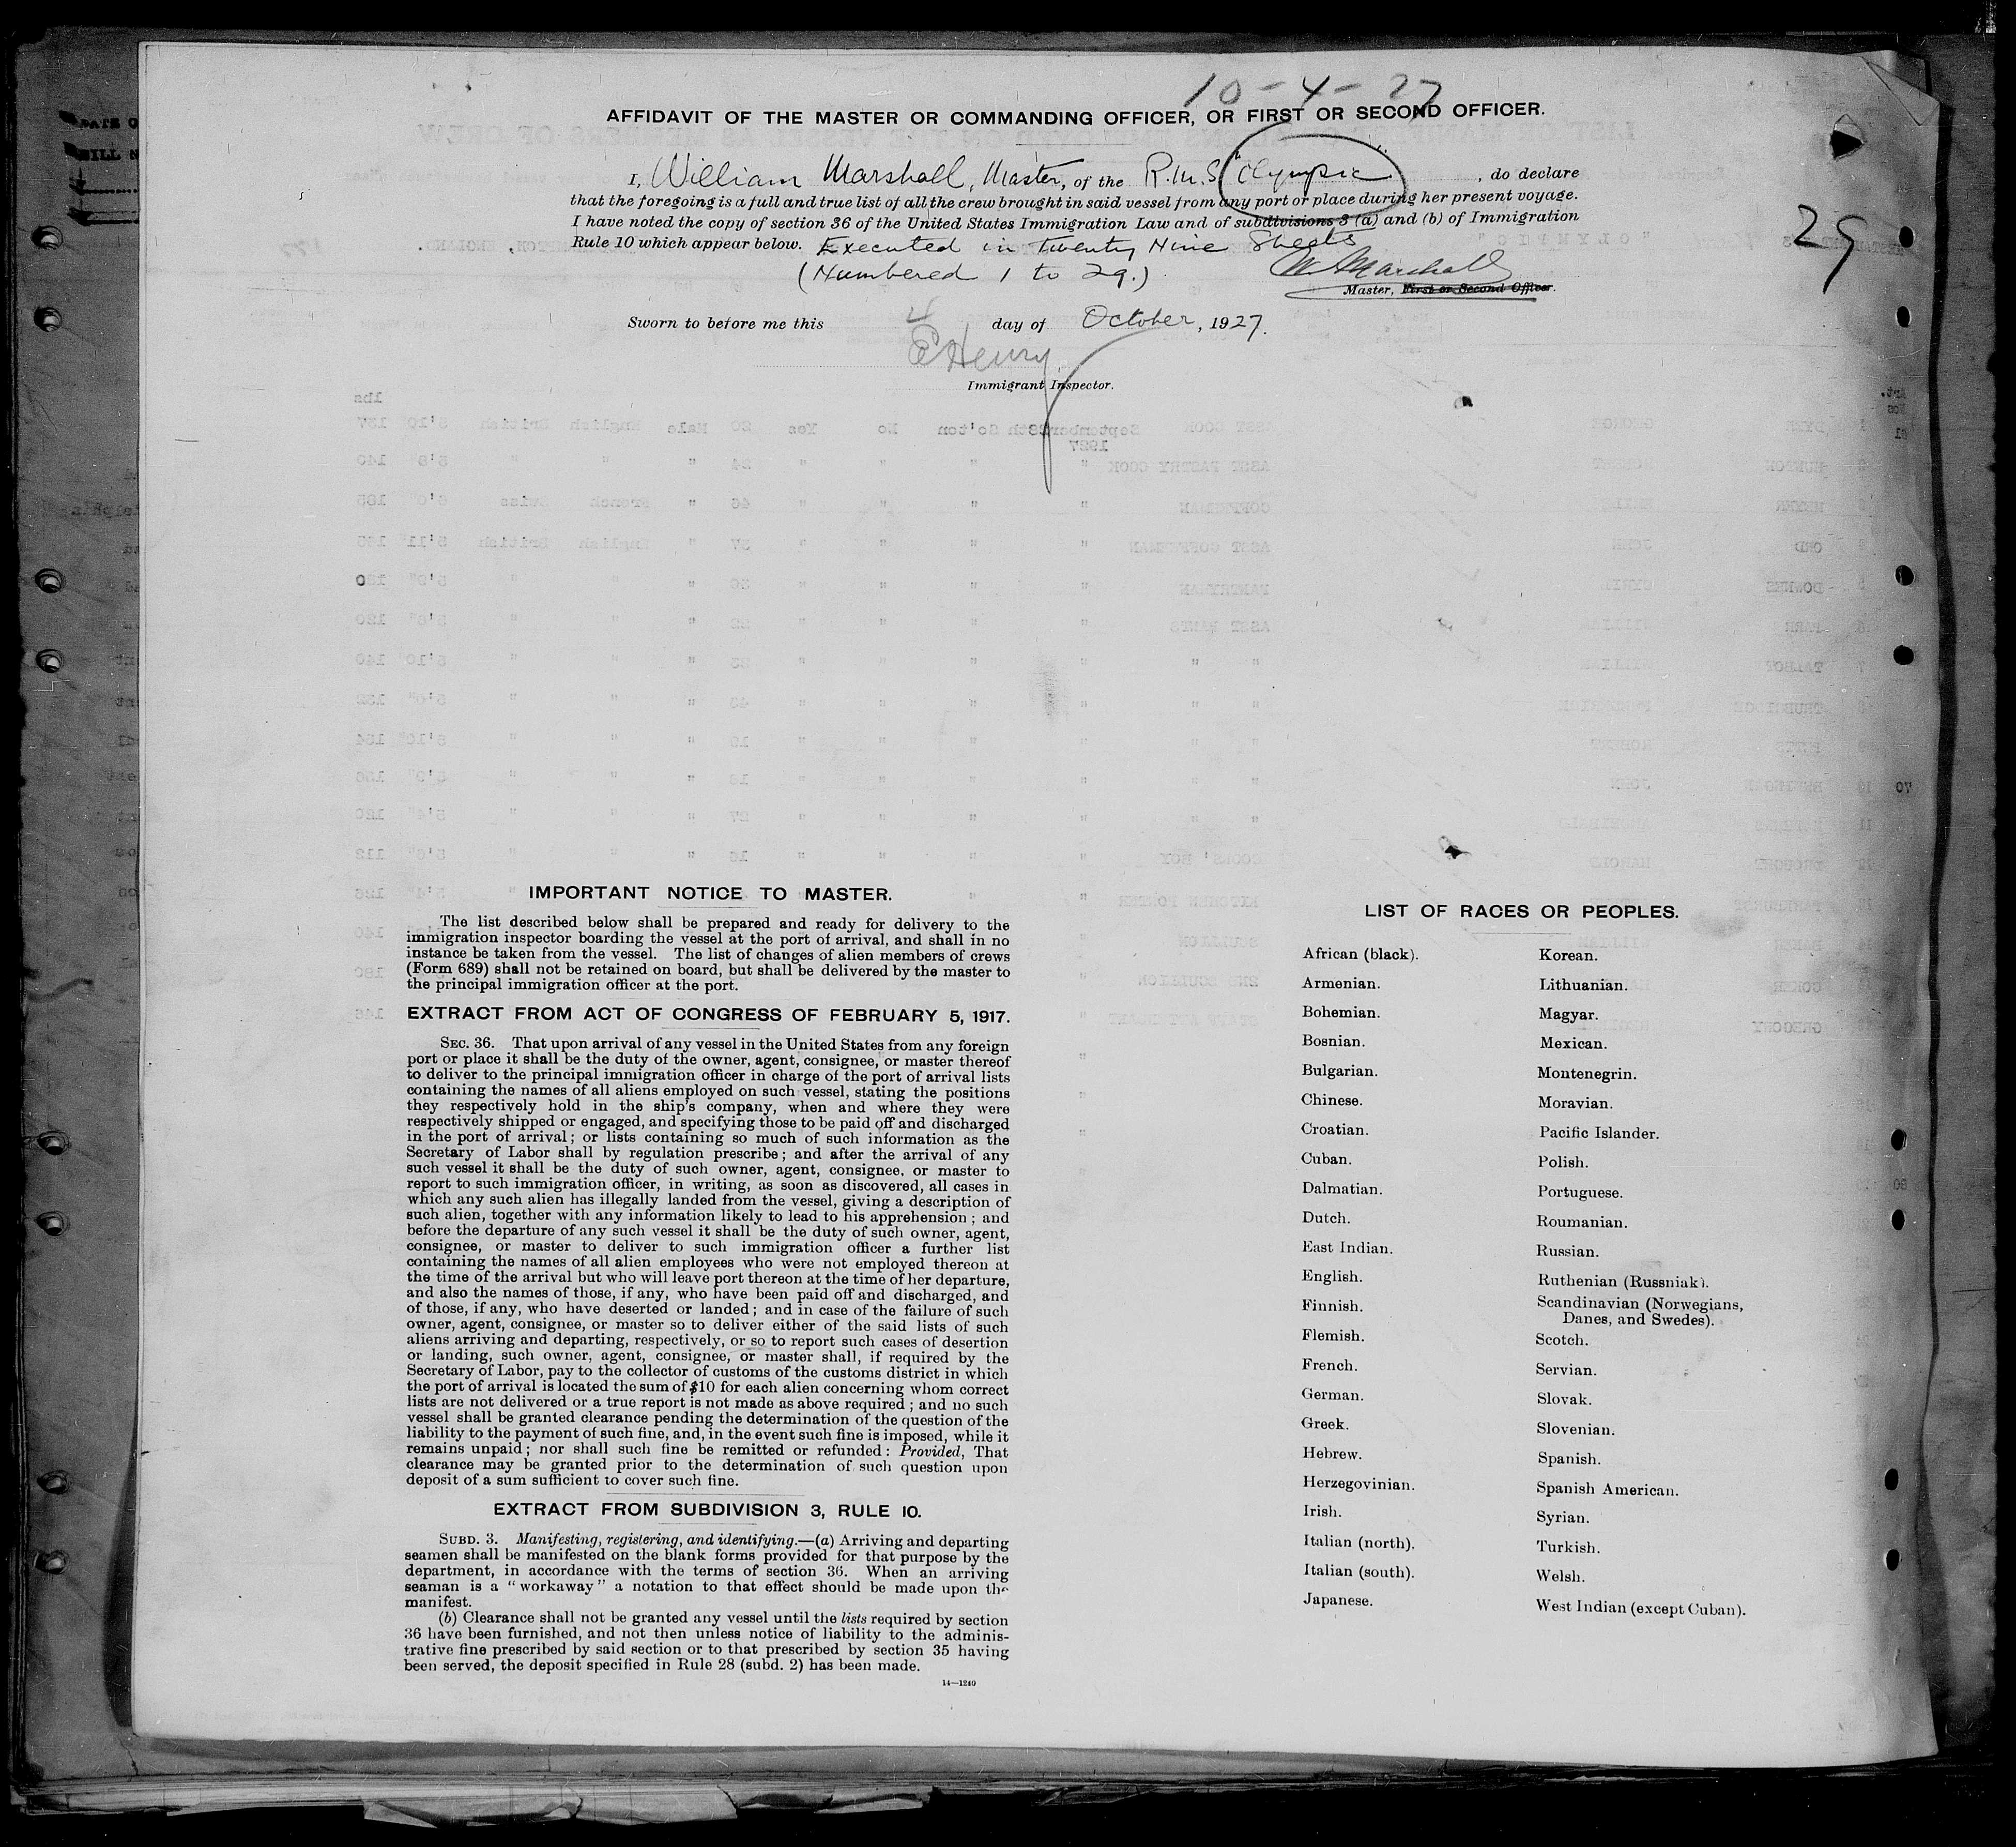 10-4-27
AFFIDAVIT OF THE MASTER OR COMMANDING OFFICER, OR FIRST OR SECOND OFFICER.
I, William Marshall, Master, of the R.M.S "Olympic", do declare
that the foregoing is a full and true list of all the crew brought in said vessel from any port or place during her present voyage.
I have noted the copy of section 36 of the United States Immigration Law and of subdivisions 3 (a) and (b) of Immigration
Rule 10 which appear below. Executed in Twenty Nine Sheets
29
(Numbered 1 to 29.)
W Marshall
Master, First or Second Officer.
Sworn to before me this 4 day of October, 1927.
E Henry
Immigrant Inspector.
IMPORTANT NOTICE TO MASTER.
The list described below shall be prepared and ready for delivery to the
immigration inspector boarding the vessel at the port of arrival, and shall in no
instance be taken from the vessel. The list of changes of alien members of crews
(Form 689) shall not be retained on board, but shall be delivered by the master to
the principal immigration officer at the port.
EXTRACT FROM ACT OF CONGRESS OF FEBRUARY 5, 1917.
SEC. 36. That upon arrival of any vessel in the United States from any foreign
port or place it shall be the duty of the owner, agent, consignee, or master thereof
to deliver to the principal immigration officer in charge of the port of arrival lists
containing the names of all aliens employed on such vessel, stating the positions
they respectively hold in the ship's company, when and where they were
respectively shipped or engaged, and specifying those to be paid off and discharged
in the port of arrival; or lists containing so much of such information as the
Secretary of Labor shall by regulation prescribe; and after the arrival of any
such vessel it shall be the duty of such owner, agent, consignee, or master to
report to such immigration officer, in writing, as soon as discovered, all cases in
which any such alien has illegally landed from the vessel, giving a description of
such alien, together with any information likely to lead to his apprehension; and
before the departure of any such vessel it shall be the duty of such owner, agent,
consignee, or master to deliver to such immigration officer a further list
containing the names of all alien employees who were not employed thereon at
the time of the arrival but who will leave port thereon at the time of her departure,
and also the names of those, if any, who have been paid off and discharged, and
of those, if any, who have deserted or landed; and in case of the failure of such
owner, agent, consignee, or master so to deliver either of the said lists of such
aliens arriving and departing, respectively, or so to report such cases of desertion
or landing, such owner, agent, consignee, or master shall, if required by the
Secretary of Labor, pay to the collector of customs of the customs district in which
the port of arrival is located the sum of $10 for each alien concerning whom correct
lists are not delivered or a true report is not made as above required; and no such
vessel shall be granted clearance pending the determination of the question of the
liability to the payment of such fine, and, in the event such fine is imposed, while it
remains unpaid; nor shall such fine be remitted or refunded: Provided, That
clearance may be granted prior to the determination of such question upon
deposit of a sum sufficient to cover such fine.
EXTRACT FROM SUBDIVISION 3, RULE 10.
SUBD. 3. Manifesting, registering, and identifying.—(a) Arriving and departing
seamen shall be manifested on the blank forms provided for that purpose by the
department, in accordance with the terms of section 36. When an arriving
seaman is a "workaway" a notation to that effect should be made upon the
manifest.
(b) Clearance shall not be granted any vessel until the lists required by section
36 have been furnished, and not then unless notice of liability to the adminis-
trative fine prescribed by said section or to that prescribed by section 35 having
been served, the deposit specified in Rule 28 (subd. 2) has been made.
14—1240
LIST OF RACES OR PEOPLES.
African (black).
Armenian.
Bohemian.
Bosnian.
Bulgarian.
Chinese.
Croatian.
Cuban.
Dalmatian.
Dutch.
East Indian.
English.
Finnish.
Flemish.
French.
German.
Greek.
Hebrew.
Herzegovinian.
Irish.
Italian (north).
Italian (south).
Japanese.
Korean.
Lithuanian.
Magyar.
Mexican.
Montenegrin.
Moravian.
Pacific Islander.
Polish.
Portuguese.
Roumanian.
Russian.
Ruthenian (Russniak).
Scandinavian (Norwegians,
Danes, and Swedes).
Scotch.
Servian.
Slovak.
Slovenian.
Spanish.
Spanish American.
Syrian.
Turkish.
Welsh.
West Indian (except Cuban).